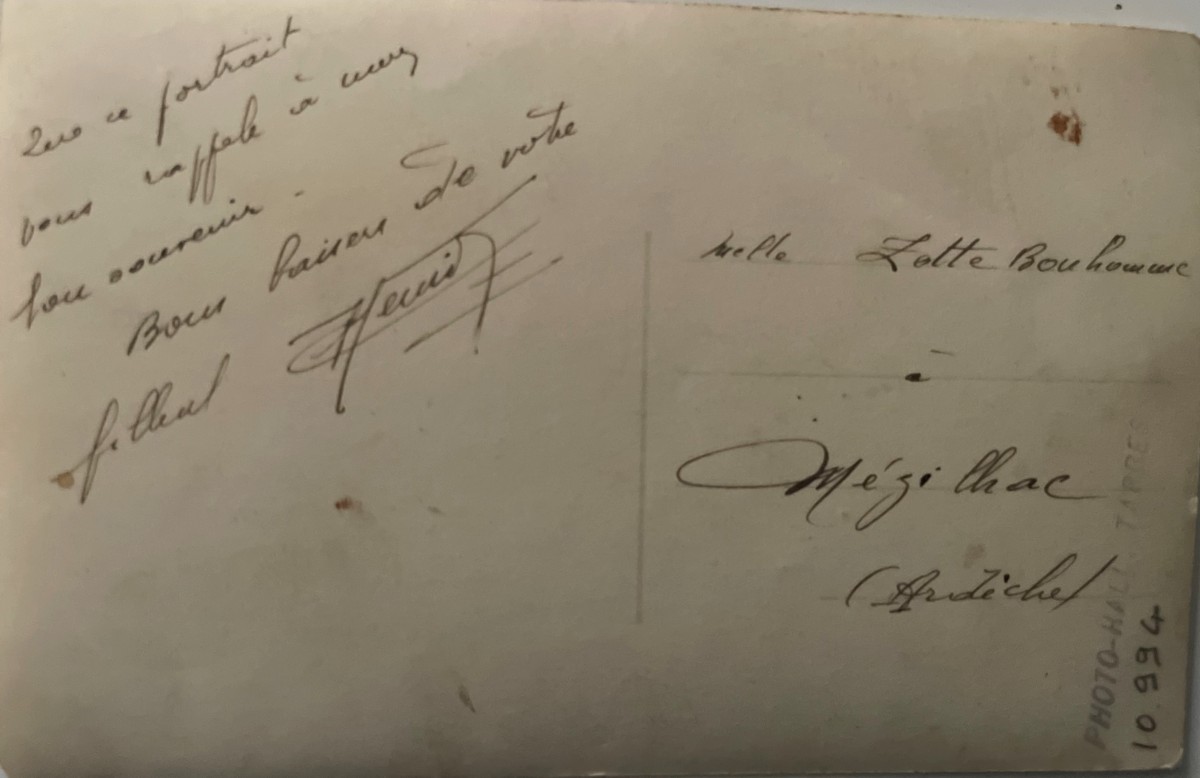 Que ce portrait
vous rappele à mon
bon souvenir.
Bons baisers de votre
filleul Henri
Melle Zotte Bonhomme
à
Mézilhac
(Ardèche)
PHOTO-HALL TARBES
10.994